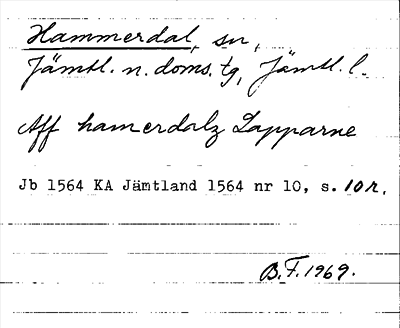 Hammerdal, sn,
Jämtl. n. doms. tg, Jämtl. l.
Aff hamerdalz Lapparne
Jb 1564 KA Jämtland 1564 nr 10, s. 10 r.
B.F. 1969.